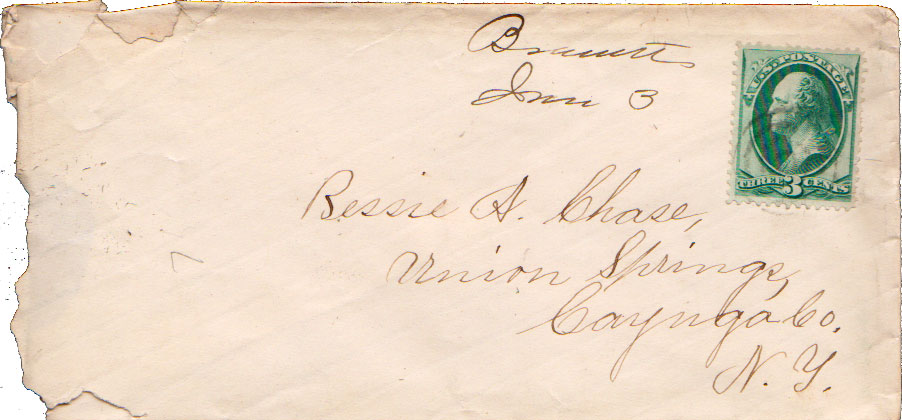 Jan 3
U.S. POSTAGE
THREE 3 CENTS
Bessie A. Chase,
Union Springs,
Cayuga Co.
N. Y.